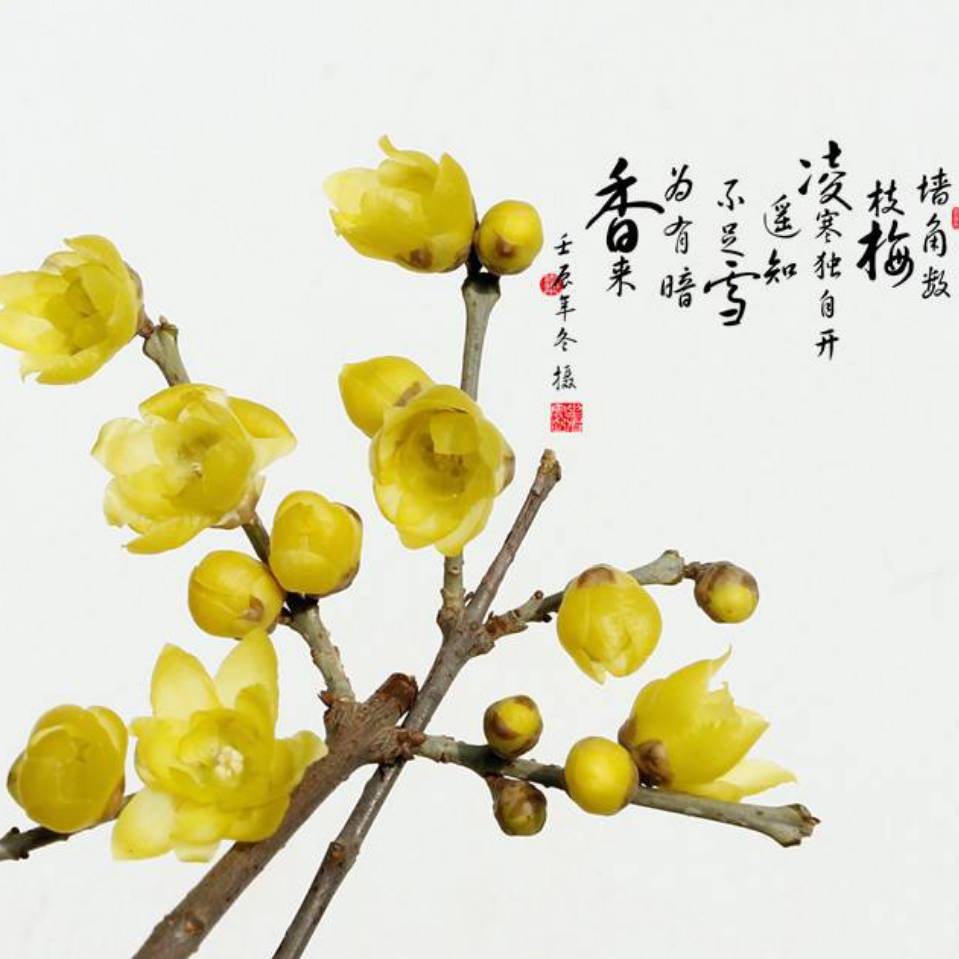 墙角数
枝梅
凌寒独自开
遥知
不是雪
为有暗
香来
壬辰年冬摄